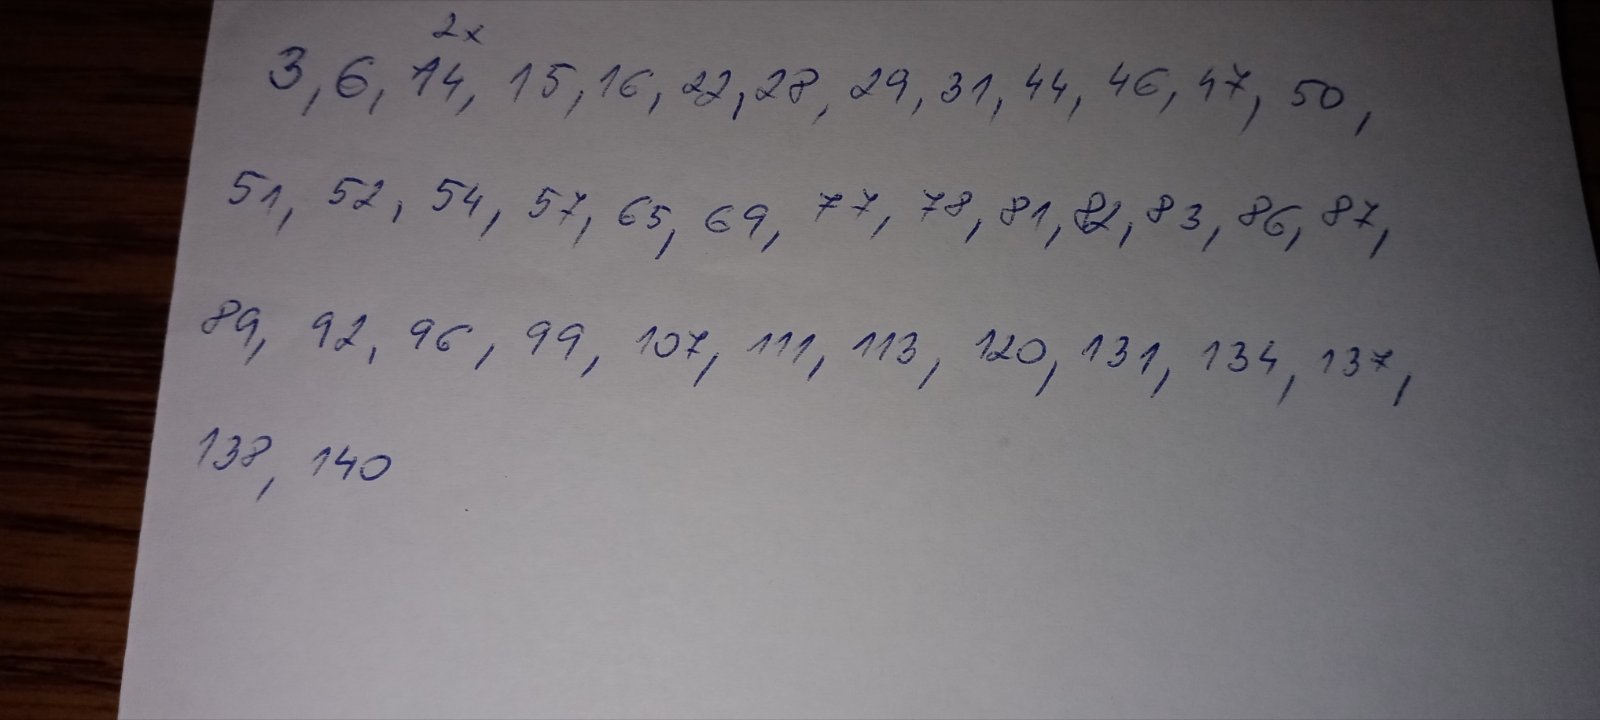 2x
3, 6, 14, 15, 16, 22, 28, 29, 31, 44, 46, 47, 50,
51, 52, 54, 57, 65, 69, 77, 78, 81, 82, 83, 86, 87,
89, 92, 96, 99, 107, 111, 113, 120, 131, 134, 137,
138, 140